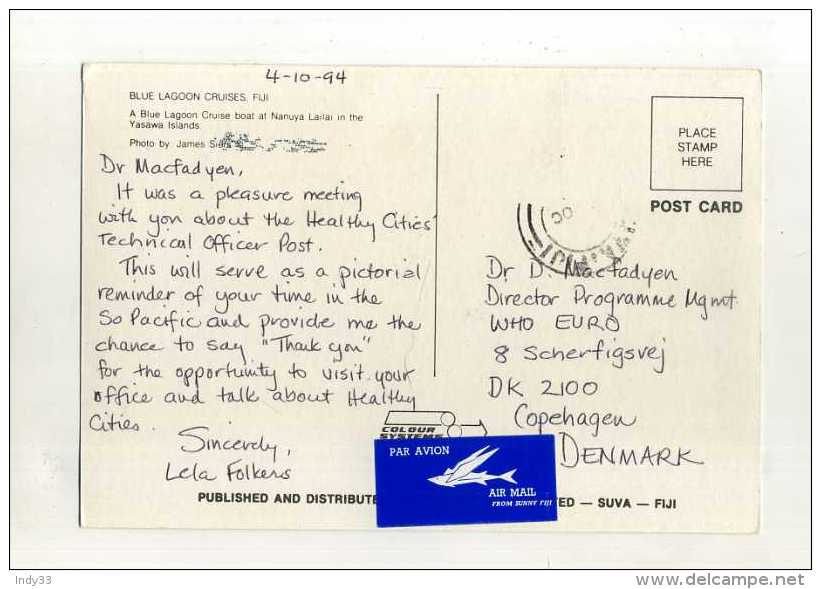 4-10-94
BLUE LAGOON CRUISES, FIJI
A Blue Lagoon Cruise boat at Nanuya Lailai in the
Yasawa Islands.
Photo by James Siers
Dr Macfadyen,
It was a pleasure meeting
with you about the Healthy Cities'
Technical Officer Post.
This will serve as a pictorial
reminder of your time in the
So Pacific and provide me the
chance to say "Thank you"
for the opportunity to visit your
office and talk about Healthy
Cities.
Sincerely,
Lela Folkers
COLOUR
SYSTEMS
PUBLISHED AND DISTRIBUTE
PLACE
STAMP
HERE
POST CARD
Dr D. Macfadyen
Director Programme Mgmt
WHO EURO
8 Scherfigsvej
DK 2100
Copehagen
DENMARK
PAR AVION
AIR MAIL
FROM SUNNY FIJI
ED — SUVA — FIJI
Indy33
www.delcampe.net